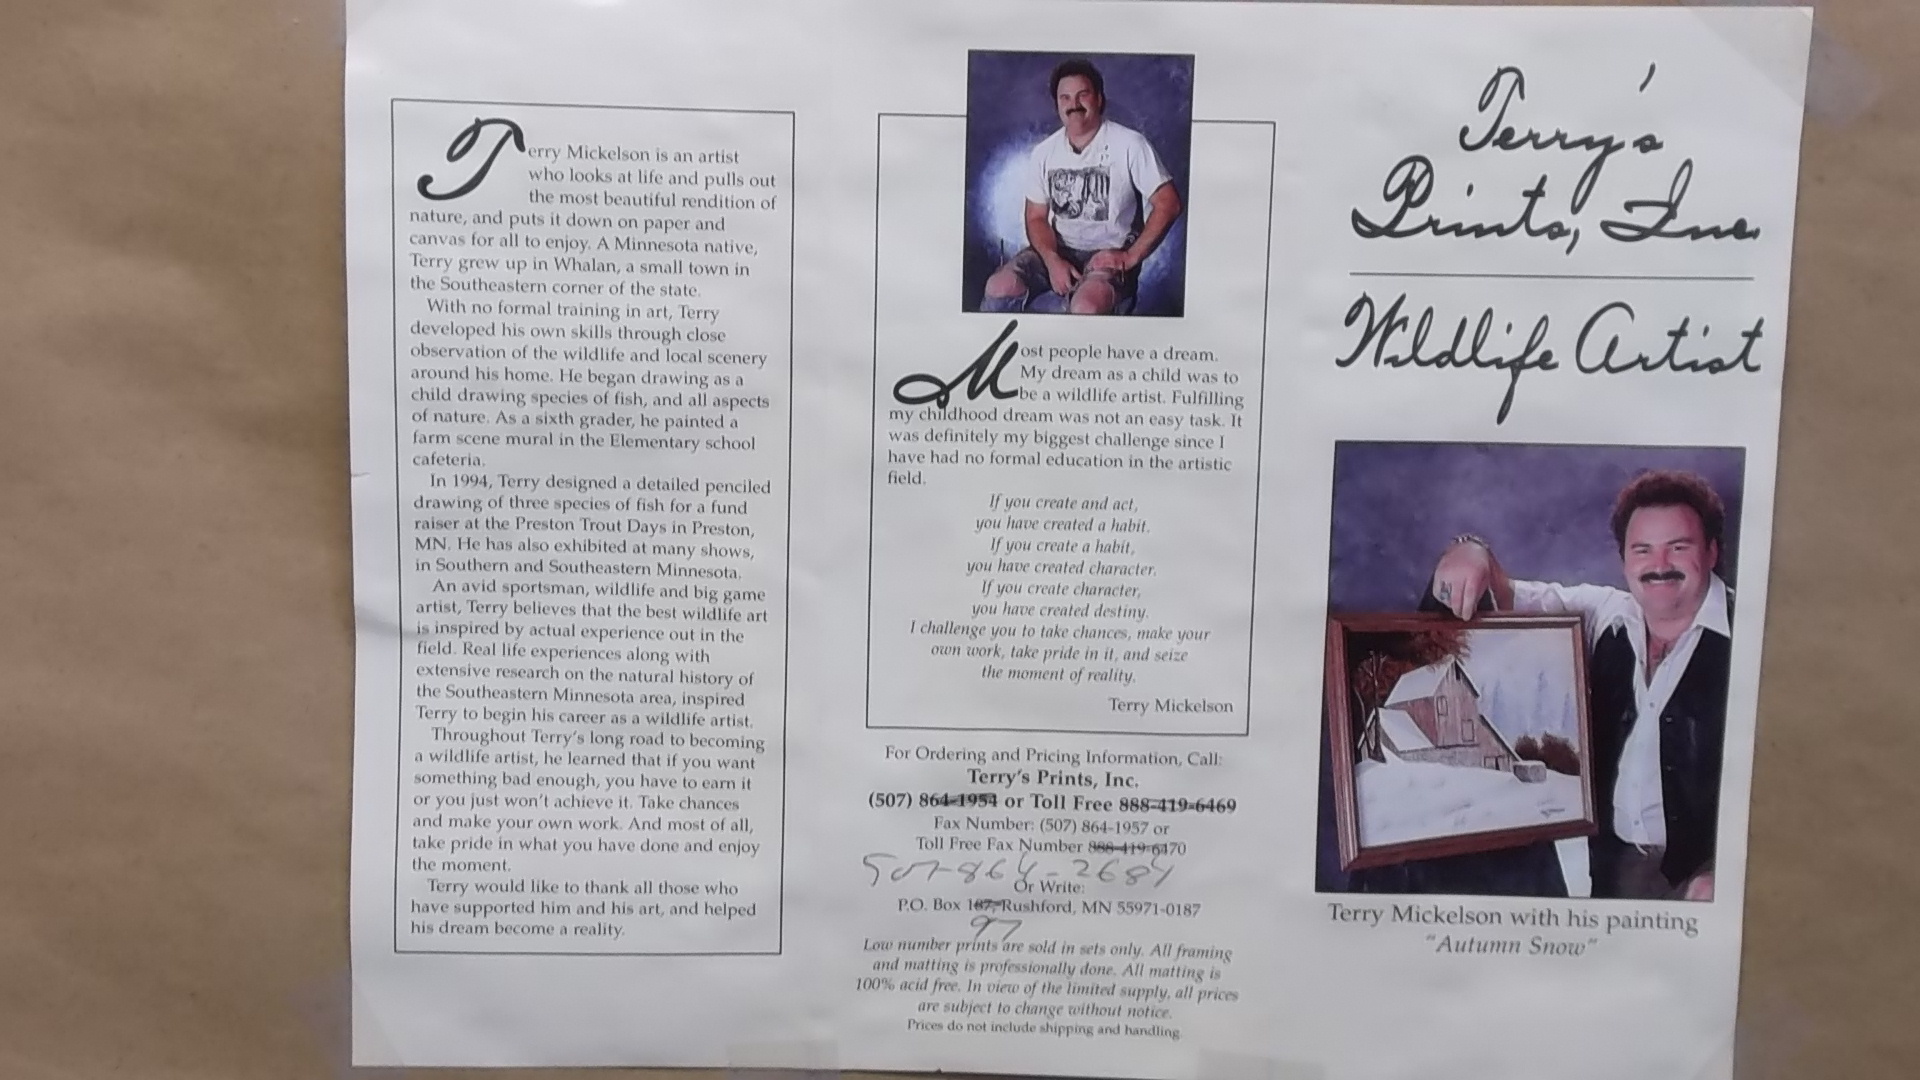 Terry Mickelson is an artist
who looks at life and pulls out
the most beautiful rendition of
nature, and puts it down on paper and
canvas for all to enjoy. A Minnesota native,
Terry grew up in Whalan, a small town in
the Southeastern corner of the state.
With no formal training in art, Terry
developed his own skills through close
observation of the wildlife and local scenery
around his home. He began drawing as a
child drawing species of fish, and all aspects
of nature. As a sixth grader, he painted a
farm scene mural in the Elementary school
cafeteria.
In 1994, Terry designed a detailed penciled
drawing of three species of fish for a fund
raiser at the Preston Trout Days in Preston,
MN. He has also exhibited at many shows,
in Southern and Southeastern Minnesota.
An avid sportsman, wildlife and big game
artist, Terry believes that the best wildlife art
is inspired by actual experience out in the
field. Real life experiences along with
extensive research on the natural history of
the Southeastern Minnesota area, inspired
Terry to begin his career as a wildlife artist.
Throughout Terry's long road to becoming
a wildlife artist, he learned that if you want
something bad enough, you have to earn it
or you just won't achieve it. Take chances
and make your own work. And most of all,
take pride in what you have done and enjoy
the moment.
Terry would like to thank all those who
have supported him and his art, and helped
his dream become a reality.
Most people have a dream.
My dream as a child was to
be a wildlife artist. Fulfilling
my childhood dream was not an easy task. It
was definitely my biggest challenge since I
have had no formal education in the artistic
field.
If you create and act,
you have created a habit.
If you create a habit,
you have created character.
If you create character,
you have created destiny.
I challenge you to take chances, make your
own work, take pride in it, and seize
the moment of reality.
Terry Mickelson
For Ordering and Pricing Information, Call:
Terry's Prints, Inc.
(507) 864-1954 or Toll Free 888-419-6469
Fax Number: (507) 864-1957 or
Toll Free Fax Number 888-419-6470
507-864-2684
Or Write:
P.O. Box 187, Rushford, MN 55971-0187
97
Low number prints are sold in sets only. All framing
and matting is professionally done. All matting is
100% acid free. In view of the limited supply, all prices
are subject to change without notice.
Prices do not include shipping and handling.
Terry's
Prints, Inc.
Wildlife Artist
Terry Mickelson with his painting
"Autumn Snow"